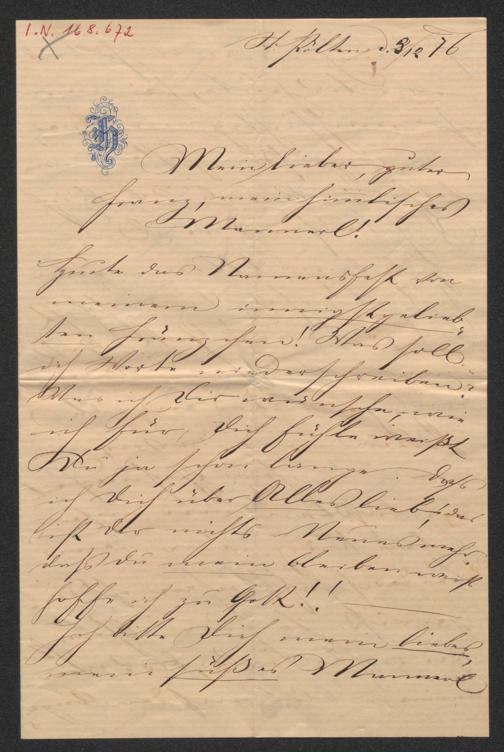 I.N. 168.672
St. Pölten d. 3/12 76
H
Mein lieber, guter
Franz, mein himlisches
Mannerl!
Heute das Namensfest von
meinem innigstgelieb-
ten Fränzchen! Was soll
ich Worte niederschreiben?
Was ich Dir wünsche, wie
ich für Dich fühle weißt
Du ja schon lange. Daß
ich Dich über Alles liebe, das
ist Dir nichts Neues mehr.
daß du mein bleiben wirst
hoffe ich zu Gott!!
Ich bitte Dich mein liebes,
mein süßes Mannerl